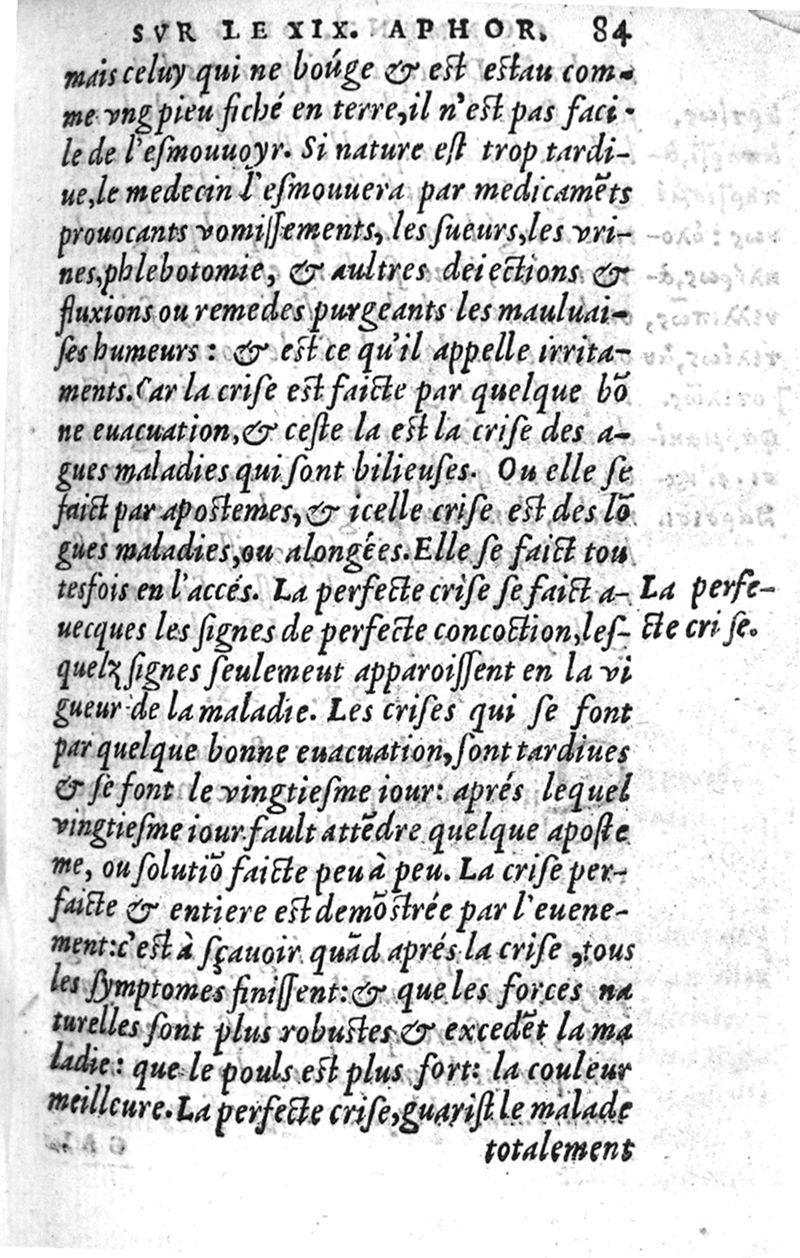 SVR LE XIX. APHOR. 84
mais celuy qui ne boúge & est estau com-
me vng pieu fiché en terre, il n'est pas faci-
le de l'esmouuoyr. Si nature est trop tardi-
ue, le medecin l'esmouuera par medicamẽts
prouocants vomissements, les sueurs, les vri-
nes, phlebotomie, & aultres deiections &
fluxions ou remedes purgeants les mauluai-
ses humeurs : & est ce qu'il appelle irrita-
ments. Car la crise est faicte par quelque bõ
ne euacuation, & ceste la est la crise des a-
gues maladies qui sont bilieuses. Ou elle se
faict par apostemes, & icelle crise est des lõ
gues maladies, ou alongées. Elle se faict tou
tesfois en l'accés. La perfecte crise se faict a-
uecques les signes de perfecte concoction, les-
quelz signes seulemeut apparoissent en la vi
gueur de la maladie. Les crises qui se font
par quelque bonne euacuation, sont tardiues
& se font le vingtiesme iour: aprés lequel
vingtiesme iour fault attẽdre quelque aposte
me, ou solutiõ faicte peu à peu. La crise per-
faicte & entiere est demõstrée par l'euene-
ment: c'est à sçauoir quãd aprés la crise, tous
les symptomes finissent: & que les forces na
turelles sont plus robustes & excedẽt la ma
ladie: que le pouls est plus fort: la couleur
meilleure. La perfecte crise, guarist le malade
totalement
La perfe-
cte crise.